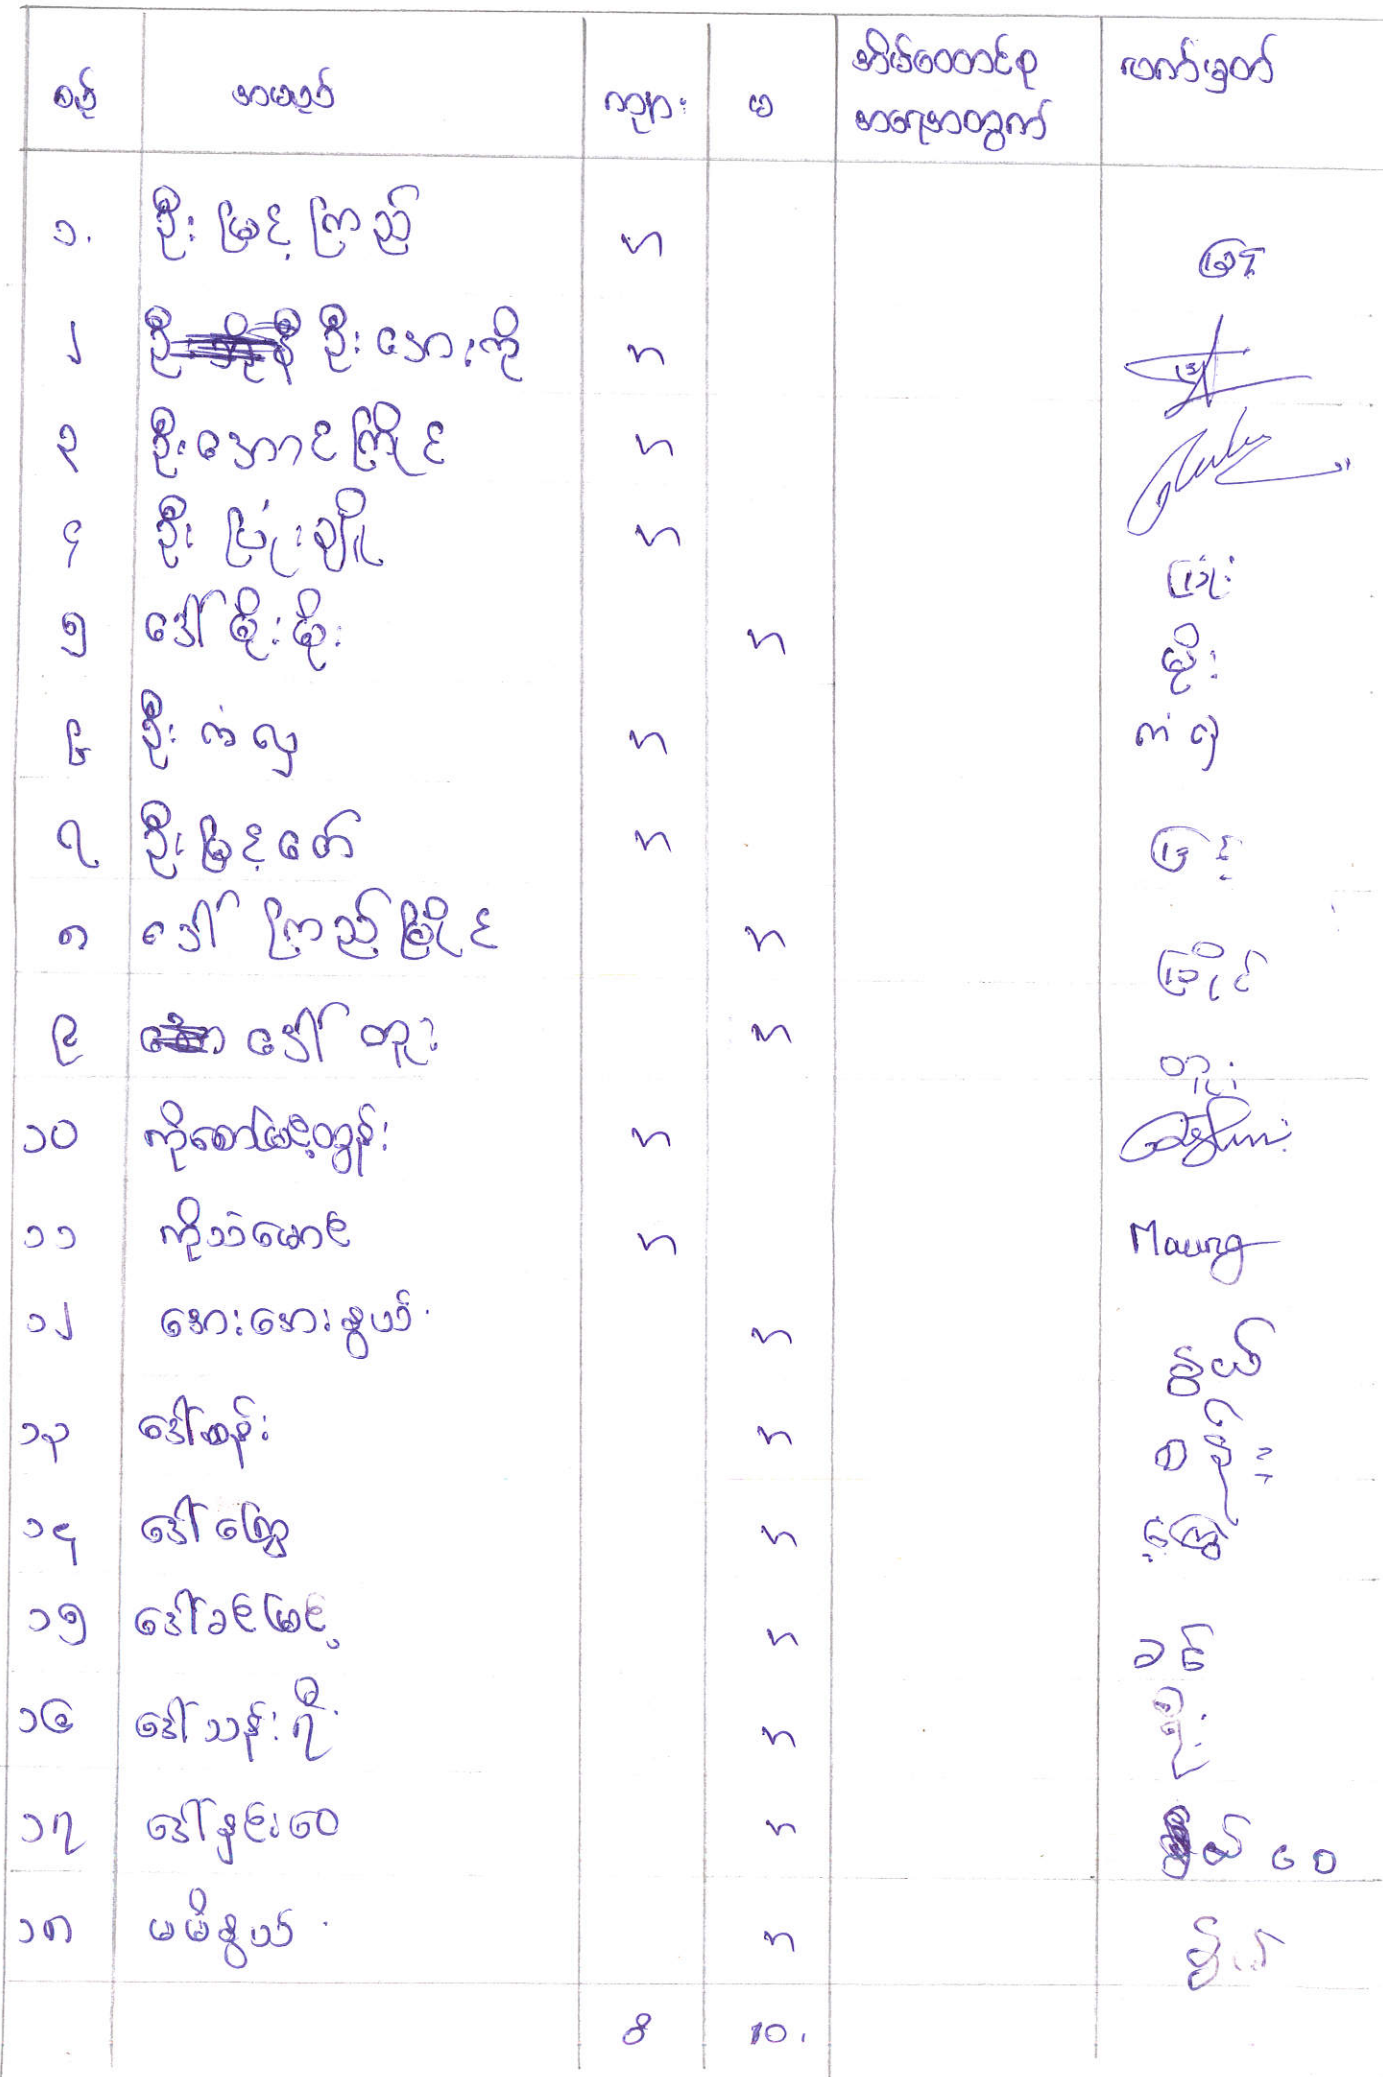 စဉ် အမည် ကျား မ အိမ်ထောင်စု အရေအတွက် လက်မှတ်
၁. ဦးမြင့်ကြည် ၁ မြင့်
၂ ဦး ဦးအေးကို ၁
၃ ဦးအောင်ကြိုင် ၁
၄ ဦးပြုံးချို ၁ ပြုံး
၅ ဒေါ်မိုးမိုး ၁ မိုး
၆ ဦးကံလှ ၁ ကံလှ
၇ ဦးမြင့်ဇော် ၁ မြင့်
၈ ဒေါ်ကြည်မြိုင် ၁ မြိုင်
၉ ဒေါ်တူး ၁ တူး
၁၀ ကိုစောမြင့်ထွန်း ၁
၁၁ ကိုသံမောင် ၁ Maung
၁၂ အေးအေးနွယ် ၁ နွယ်
၁၃ ဒေါ်စန်း ၁ စန်း
၁၄ ဒေါ်ကြွေ ၁ ကြွေ
၁၅ ဒေါ်ခင်မြင့် ၁ ခင်
၁၆ ဒေါ်သန်းရီ ၁ ရီ
၁၇ ဒေါ်နှင်းဝေ ၁ ဝေ
၁၈ မမိနွယ် ၁ နွယ်
8 10.